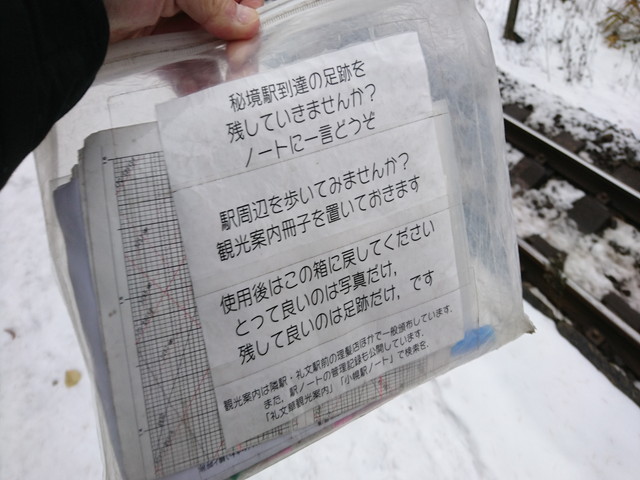 秘境駅到達の足跡を
残していきませんか?
ノートに一言どうぞ
駅周辺を歩いてみませんか?
観光案内冊子を置いておきます
使用後はこの箱に戻してください
とって良いのは写真だけ,
残して良いのは足跡だけ, です
観光案内は隣駅・礼文駅前の理髪店ほかで一般頒布しています.
また、駅ノートの管理記録も公開しています.
「礼文華観光案内」「小幌駅ノート」で検索を.